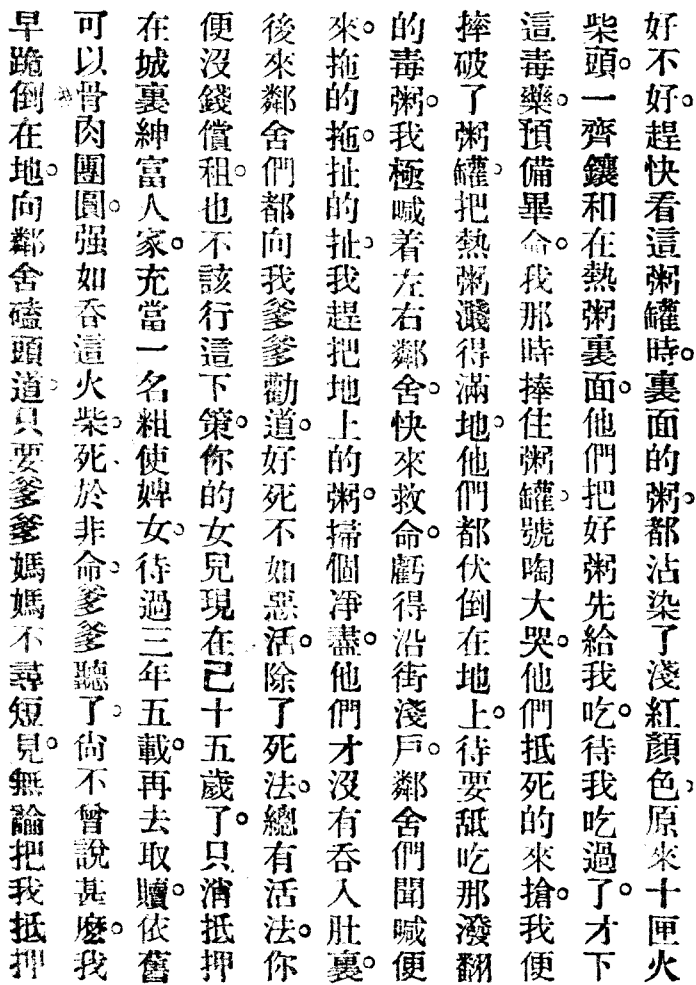 好不好。趕快看這粥罐時。裏面的粥。都沾染了淺紅顏色。原來十匣火
柴頭。一齊鑲和在熱粥裏面。他們把好粥先給我吃。待我吃過了。才下
這毒藥。預備畢命。我那時捧住粥罐。號啕大哭。他們抵死的來搶。我便
摔破了粥罐。把熱粥濺得滿地。他們都伏倒在地上。待要舐吃那潑翻
的毒粥。我極喊着左右鄰舍。快來救命。虧得沿街淺戶。鄰舍們聞喊便
來。拖的拖。扯的扯。我趕把地上的粥。掃個凈盡。他們才沒有吞入肚裏。
後來鄰舍們都向我爹爹勸道。好死不如惡活。除了死法。總有活法。你
便沒錢償租。也不該行這下策。你的女兒現在已十五歲了。只消抵押
在城裏紳富人家。充當一名粗使婢女。待過三年五載。再去取贖。依舊
可以骨肉團圓。强如吞這火柴。死於非命。爹爹聽了。尙不曾說甚麽。我
早跪倒在地。向鄰舍磕頭道。只要爹爹媽媽不尋短見。無論把我抵押